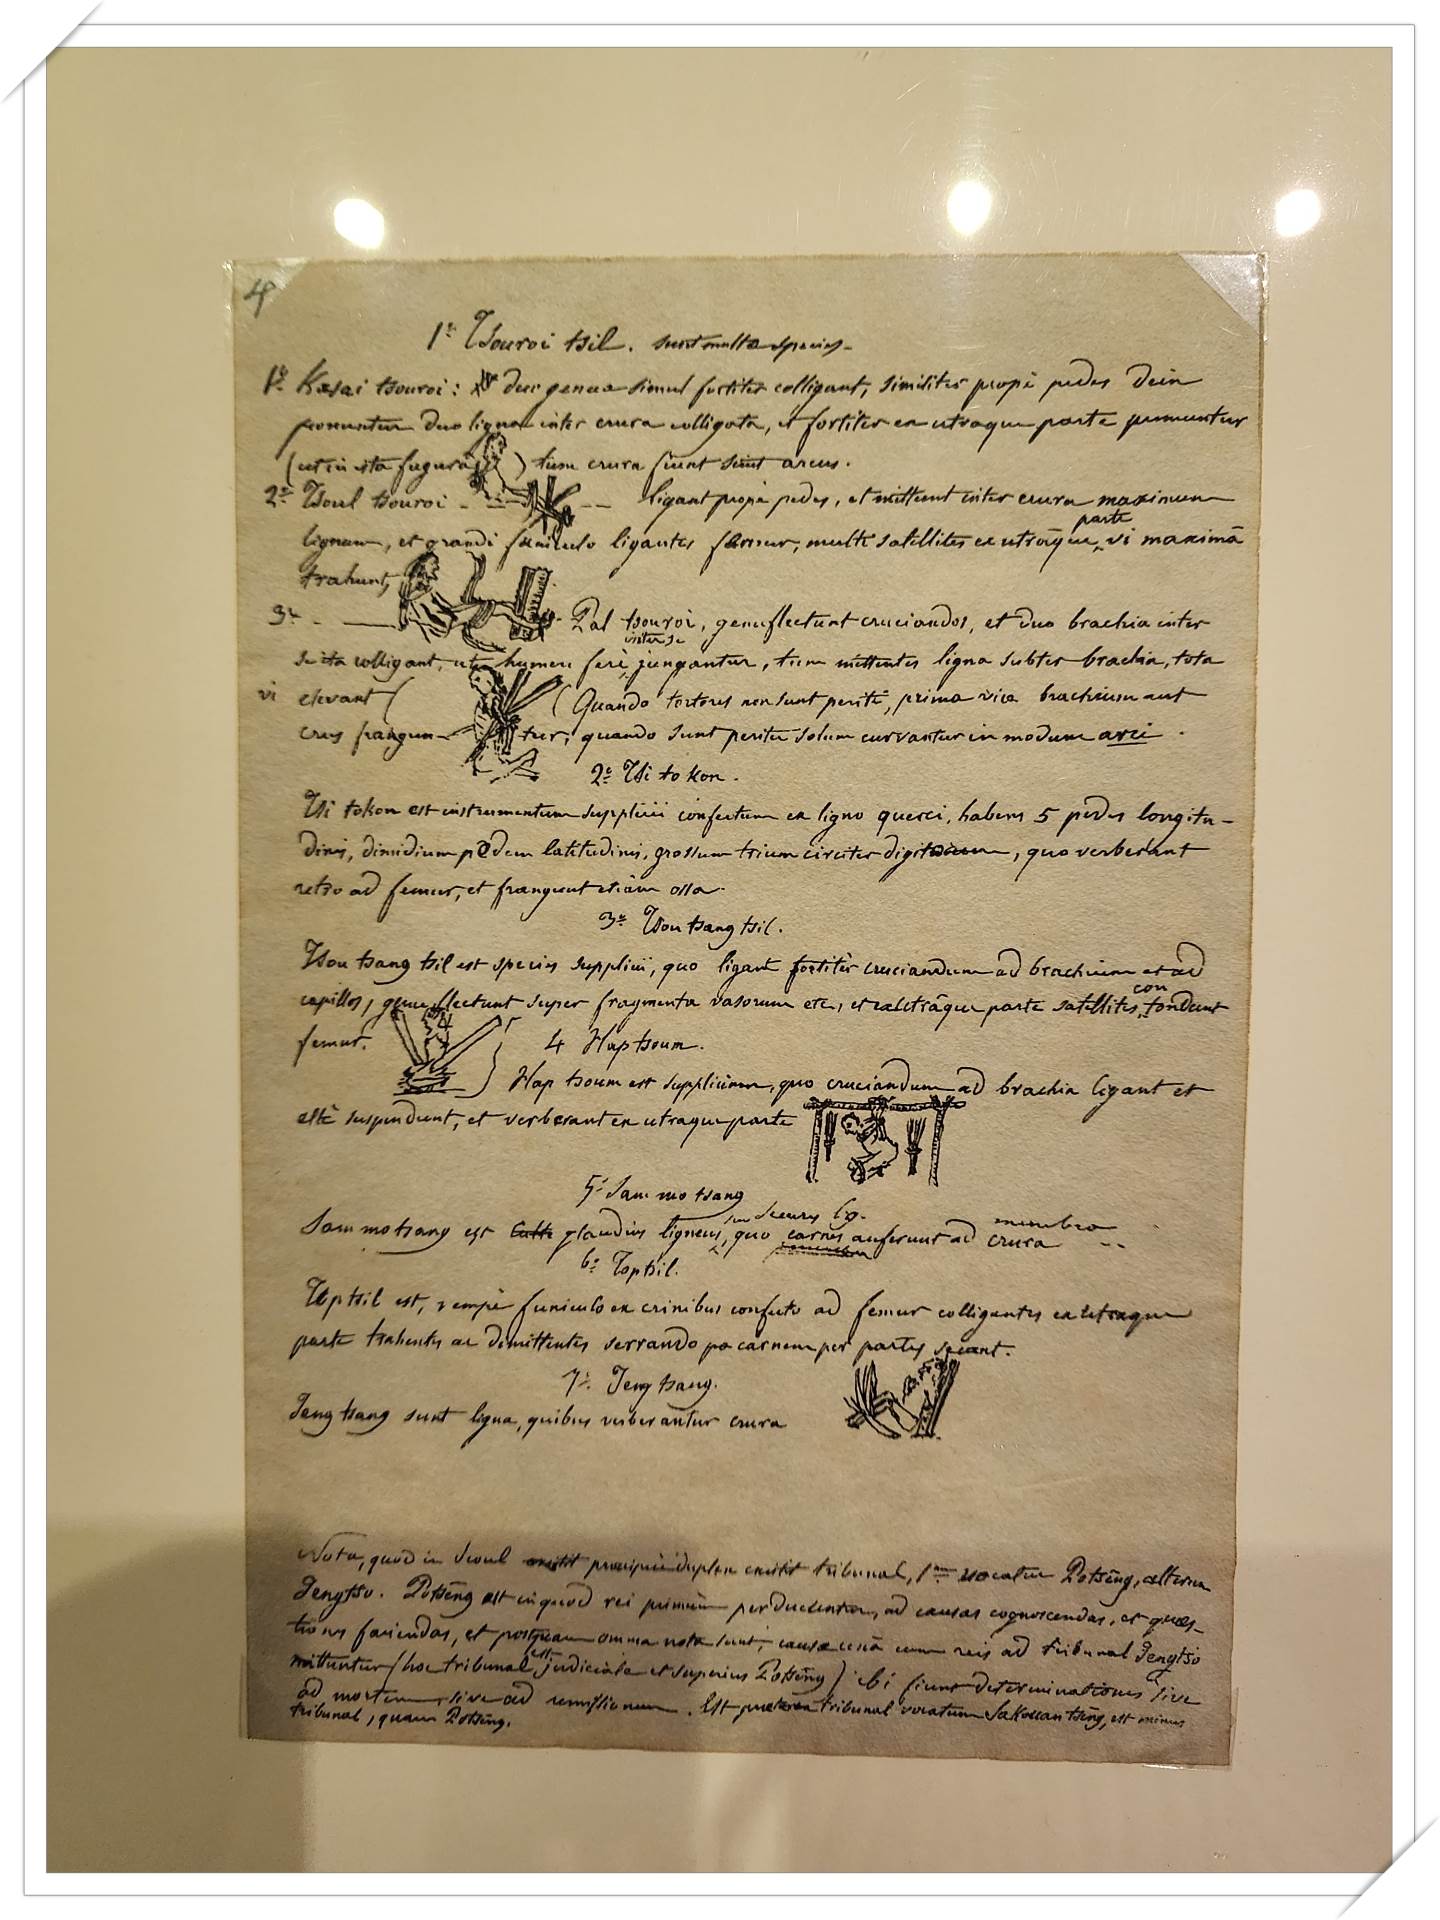 4
1º Tsouroi tsil. sunt multæ species.
1º Kasai tsouroi: duo genua simul fortiter colligant, similiter propè pedes dein
ponuntur duo ligna inter crura colligata, et fortiter ex utraque parte premuntur
(ut in ista figurâ ) tum crura fiunt sicut arcus.
2º Tsoul tsouroi ligant propè pedes, et mittunt inter crura maximum
lignum, et grandi funiculo ligantes femur, multi satellites ex utrâque parte vi maximâ
trahunt,
3º Pal tsouroi, genuflectunt cruciandos, et duo brachia inter
se ita colligant, ut humeri ferè inter se jungantur, tum mittentes ligna subter brachia, tota
vi elevant ( (Quando tortores non sunt periti, prima vice brachium aut
crus frangun tur, quando sunt periti solum curvantur in modum arci.
2º Tsi to kon.
Tsi tokon est instrumentum supplicii confectum ex ligno querci, habens 5 pedes longitu-
dinis, dimidium pedem latitudinis, grossum trium circiter digit, quo verberant
retro ad femur, et frangunt etiàm ossa.
3º Tsou tsang tsil.
Tsou tsang tsil est species supplicii, quo ligant fortitèr cruciandum ad brachium et ad
capillos, genuflectunt super fragmenta vasorum etc, et ex utrâque parte satellites contundunt
femur.
4 Hap tsoum.
Hap tsoum est supplicium, quo cruciandum ad brachia ligant et
altè suspendunt, et verberant ex utraque parte
5º Sam mo tsang
Sam motsang est gladius ligneus, seu securis lg. quo carnes auferunt ad membra crura
6º Toptsil.
Toptsil est, nempè funiculo ex crinibus confecto ad femur colligantes ex utraque
parte trahentes ac dimittentes serrando carnem per partes secant.
7º Teng tsang.
Teng tsang sunt ligna, quibus verberantur crura
Nota, quod in Seoul præcipuè duplex existit tribunal, 1um vocatur Potseng, alterum
Jengtso. Potseng est in quod rei primùm perducuntur, ad causas cognoscendas, et quæs-
tiones faciendas, et postquam omnia nota sunt, causæ unà cum reis ad tribunal Jengtso
mittuntur (hoc tribunal est judiciale et superius Potseng) ibi fiunt determinationes sive
ad mortem, sive ad remissionem. Est præterea tribunal vocatum Sakouan tseng, est minus
tribunal, quam Potseng.